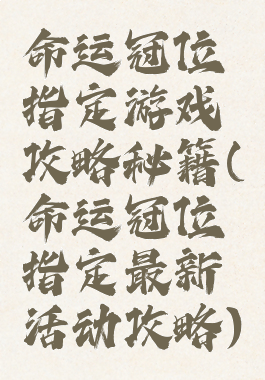 命运冠位
指定游戏
攻略秘籍(
命运冠位
指定最新
活动攻略)